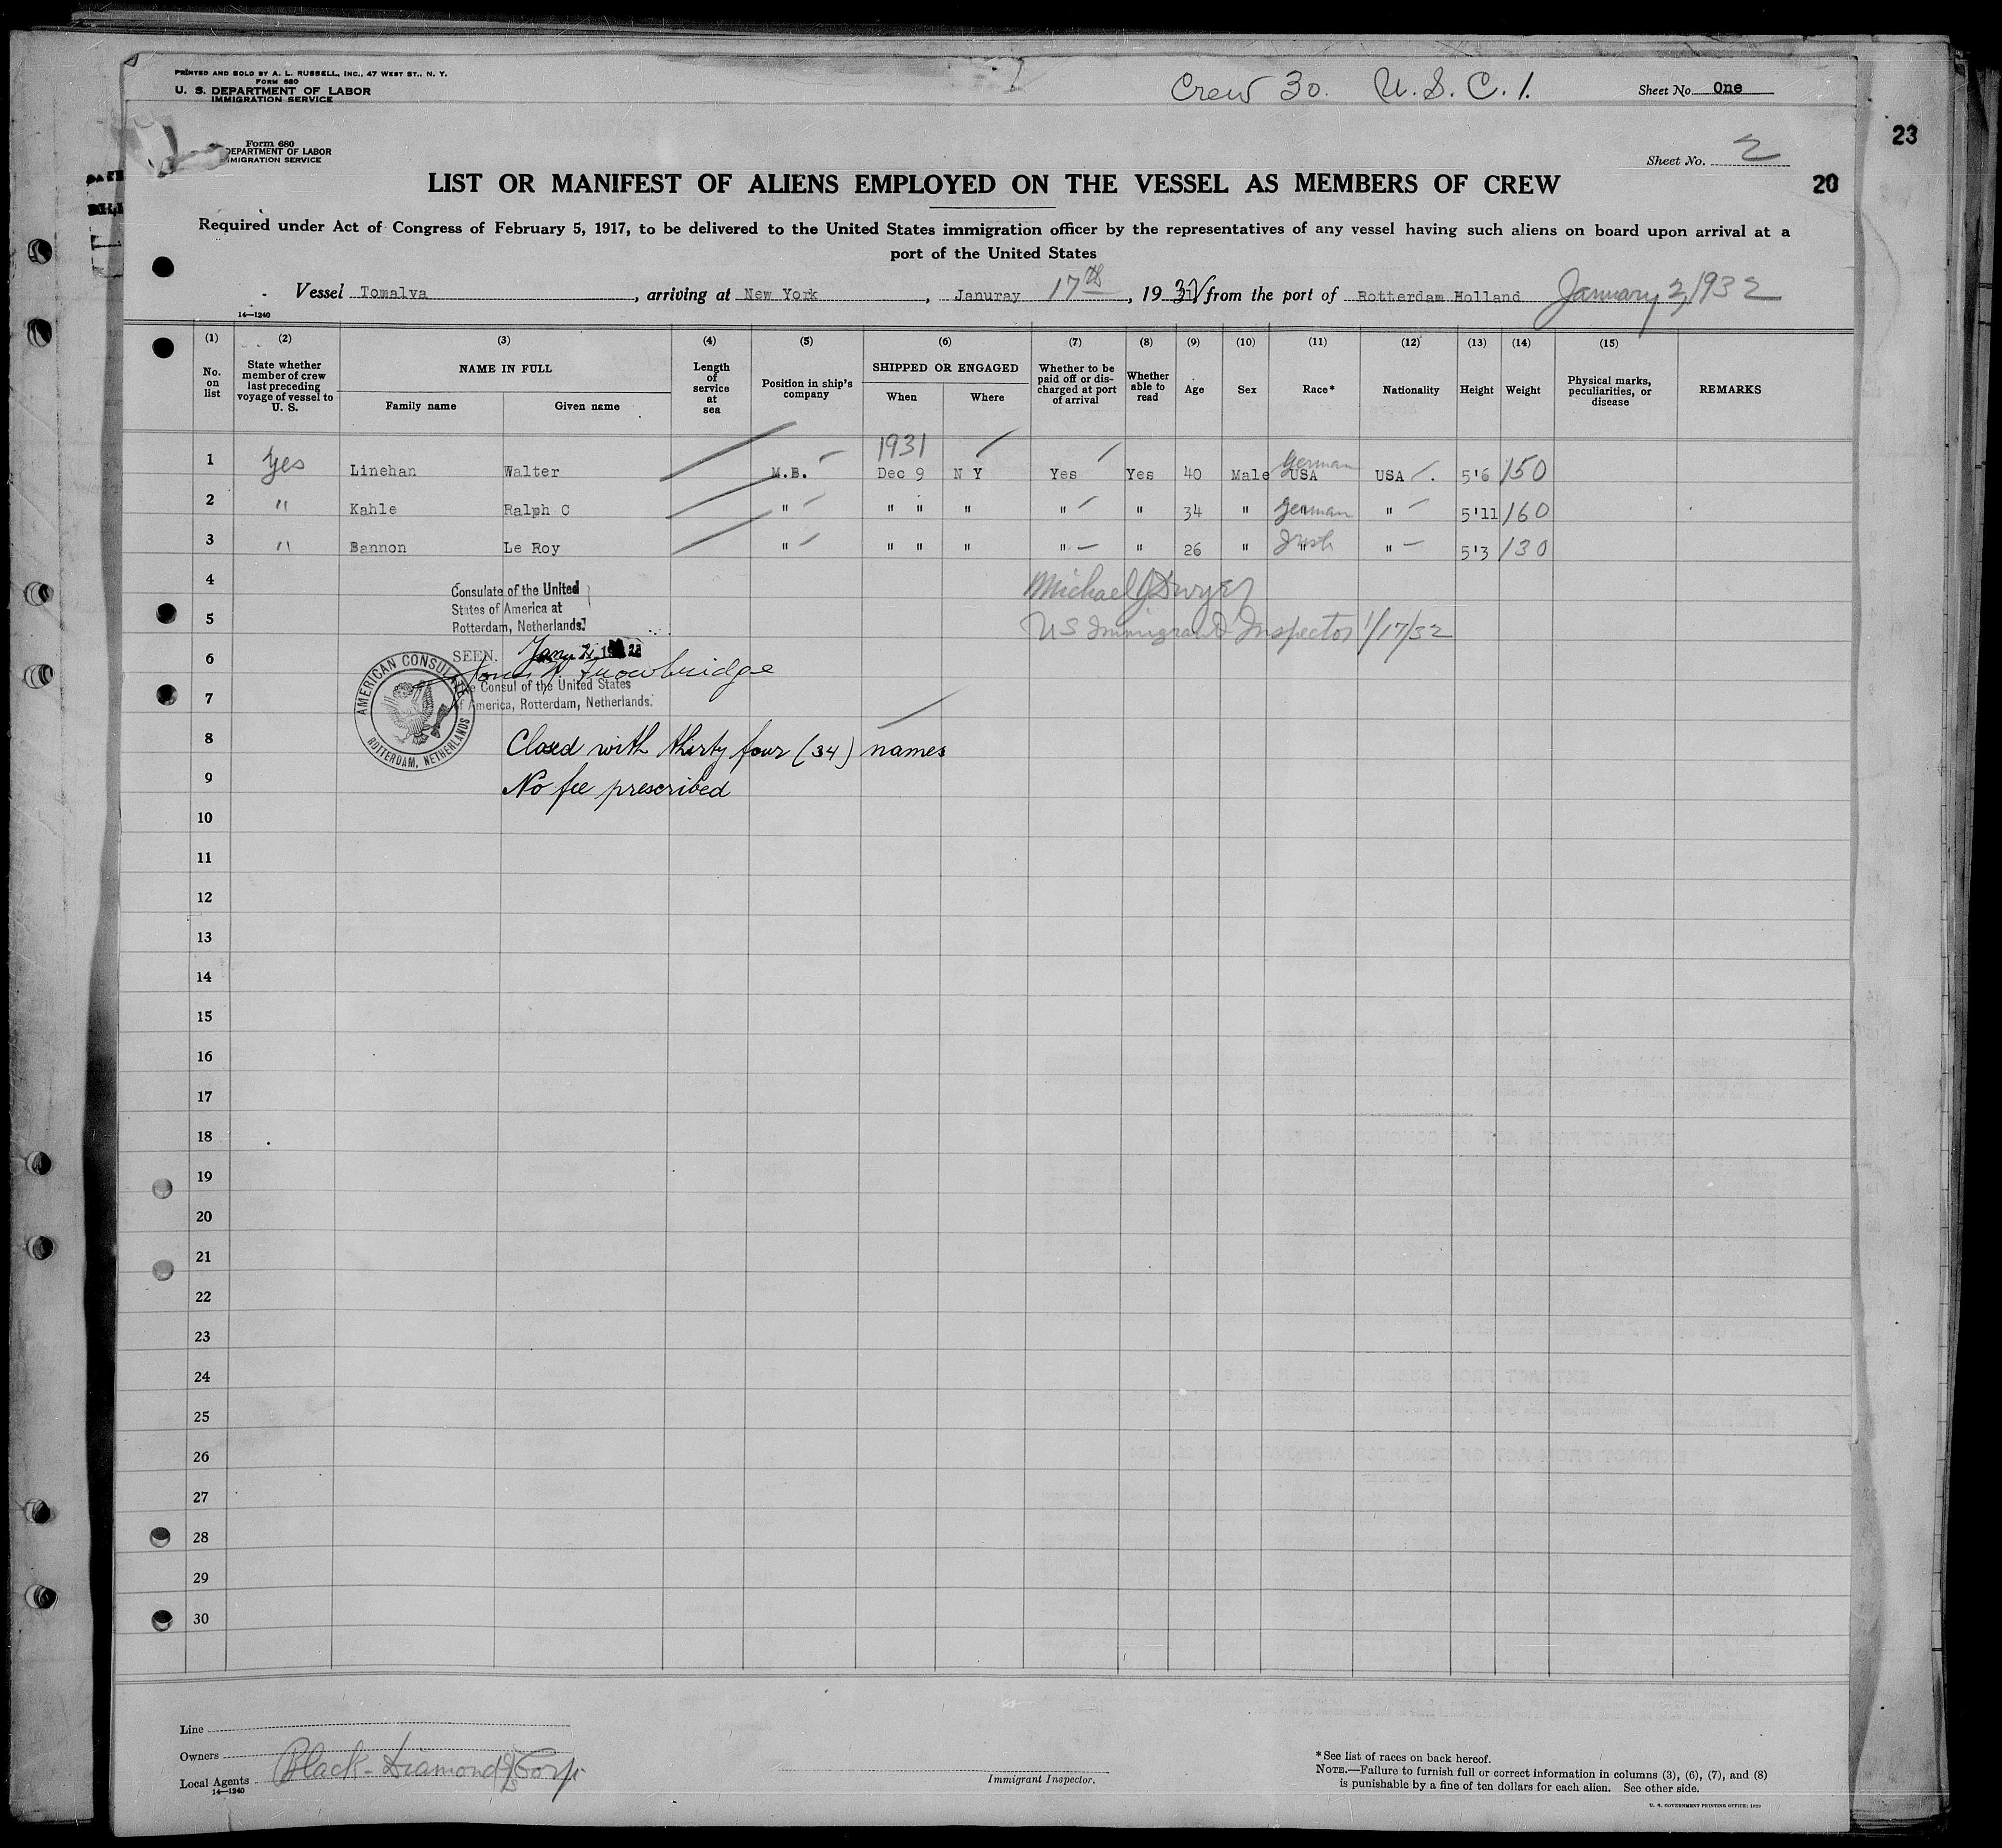 PRINTED AND SOLD BY A. L. RUSSELL, INC., 47 WEST ST., N. Y.
FORM 680
U. S. DEPARTMENT OF LABOR
IMMIGRATION SERVICE
Crew 30. U. S. C. 1.
Sheet No. One
23
Form 680
DEPARTMENT OF LABOR
MIGRATION SERVICE
Sheet No. 2
LIST OR MANIFEST OF ALIENS EMPLOYED ON THE VESSEL AS MEMBERS OF CREW
20
Required under Act of Congress of February 5, 1917, to be delivered to the United States immigration officer by the representatives of any vessel having such aliens on board upon arrival at a
port of the United States
Vessel Tomalva, arriving at New York, Januray 17th, 19 from the port of Rotterdam Holland January 2, 1932
14—1240
(1) (2) (3) (4) (5) (6) (7) (8) (9) (10) (11) (12) (13) (14) (15)
No. on list
State whether member of crew last preceding voyage of vessel to U. S.
NAME IN FULL
Family name Given name
Length of service at sea
Position in ship's company
SHIPPED OR ENGAGED
When Where
Whether to be paid off or discharged at port of arrival
Whether able to read
Age
Sex
Race*
Nationality
Height
Weight
Physical marks, peculiarities, or disease
REMARKS
1931 German
1 Yes Linehan Walter M.B. Dec 9 N Y Yes Yes 40 Male USA USA 5'6 150
2 " Kahle Ralph C " " " " " " 34 " German " 5'11 160
3 " Bannon Le Roy " " " " " " 26 " Irish " 5'3 130
4
Consulate of the United
States of America at
Rotterdam, Netherlands.
Michael J Dwyer
US Immigrant Inspector 1/17/32
5
6
SEEN.
Trowbridge
Consul of the United States
of America, Rotterdam, Netherlands.
AMERICAN CONSULATE
ROTTERDAM, NETHERLANDS
7
8 Closed with thirty four (34) names
9 No fee prescribed
10
11
12
13
14
15
16
17
18
19
20
21
22
23
24
25
26
27
28
29
30
Line
Owners
Local Agents Black-Diamond SS Corp.
14—1240
Immigrant Inspector.
*See list of races on back hereof.
NOTE.—Failure to furnish full or correct information in columns (3), (6), (7), and (8)
is punishable by a fine of ten dollars for each alien. See other side.
U. S. GOVERNMENT PRINTING OFFICE: 1929